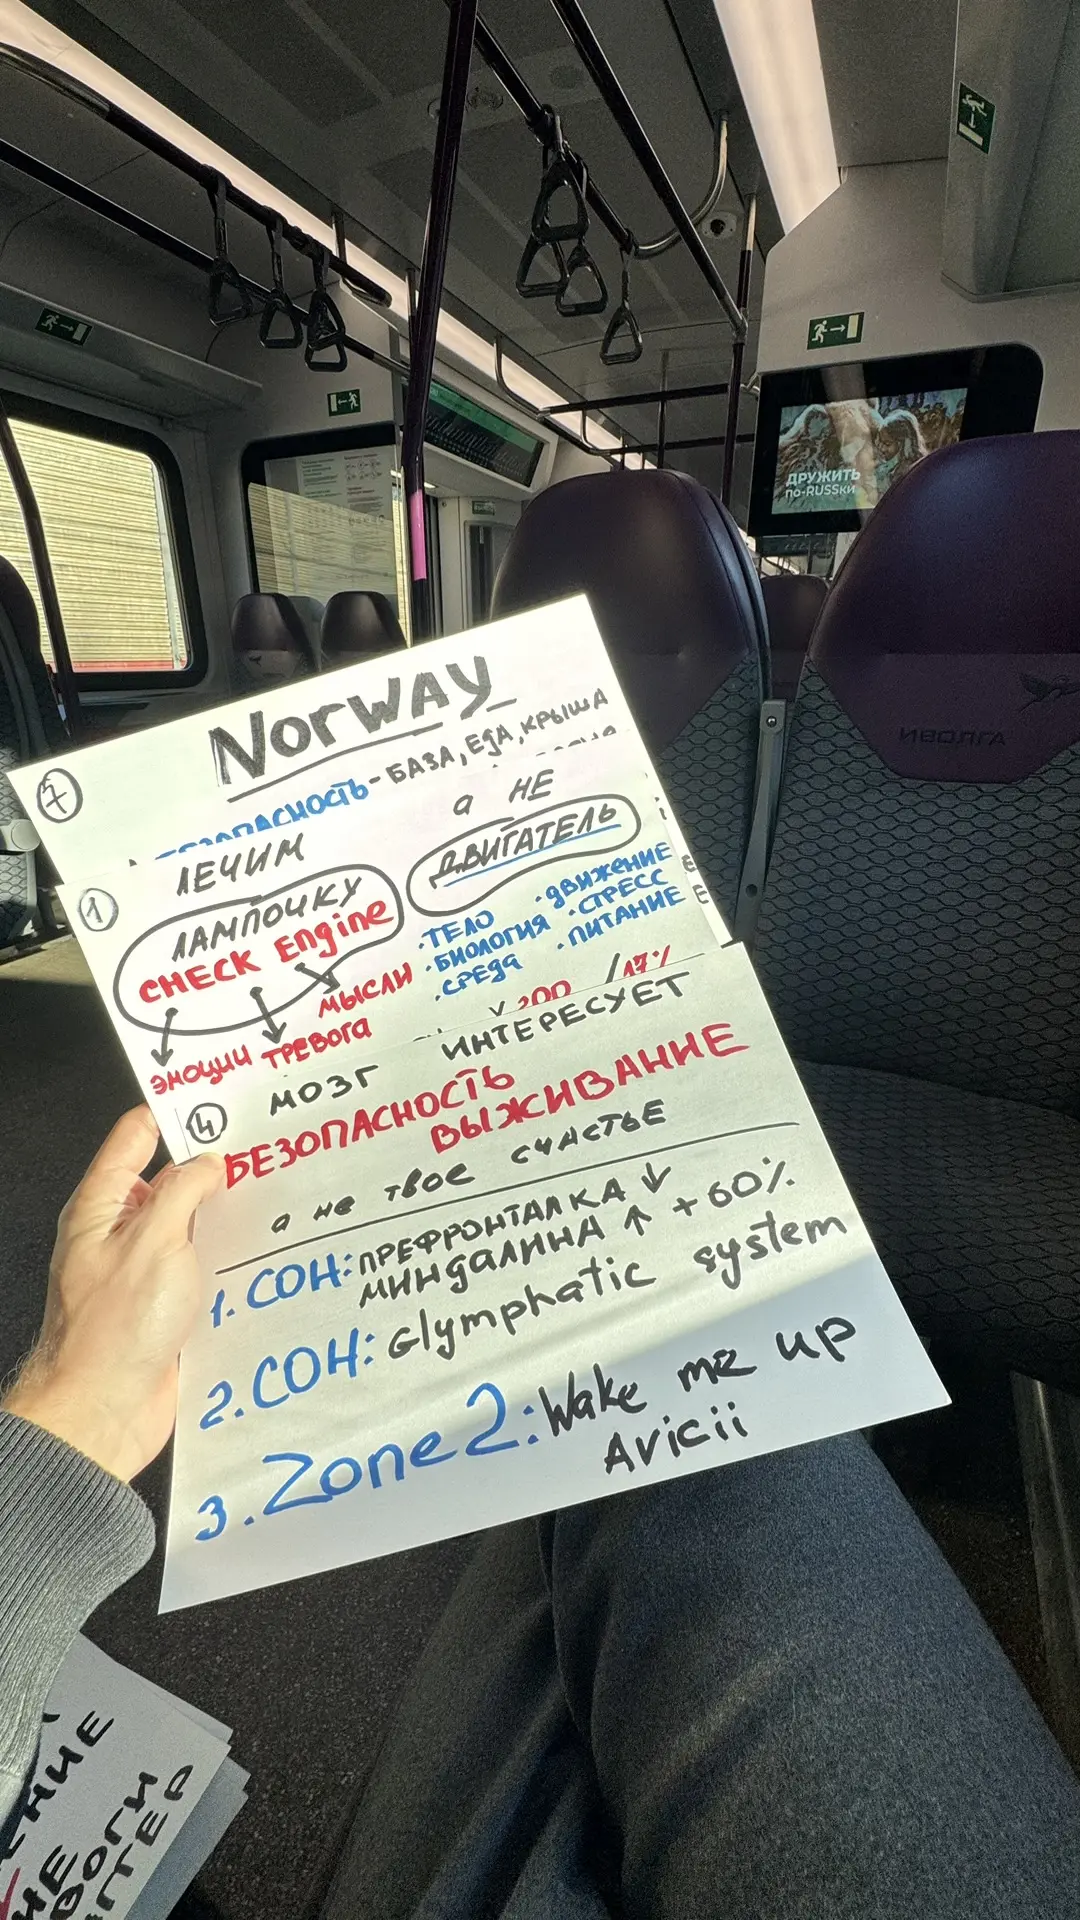 ДРУЖИТЬ
ПО-RUSSКИ
ИВОЛГА
Norway
БЕЗОПАСНОСТЬ - БАЗА, ЕДА, КРЫША
1
ЛЕЧИМ а НЕ
ЛАМПОЧКУ ДВИГАТЕЛЬ
CHECK Engine
• ТЕЛО • ДВИЖЕНИЕ
• БИОЛОГИЯ • СТРЕСС
• СРЕДА • ПИТАНИЕ
МЫСЛИ
ЭМОЦИИ ТРЕВОГА
200 / 17%
4
МОЗГ ИНТЕРЕСУЕТ
БЕЗОПАСНОСТЬ
ВЫЖИВАНИЕ
а не твое счастье
1. СОН: ПРЕФРОНТАЛКА ↓
МИНДАЛИНА ↑ + 60%
2. СОН: Glymphatic system
3. Zone 2: Wake me up
Avicii